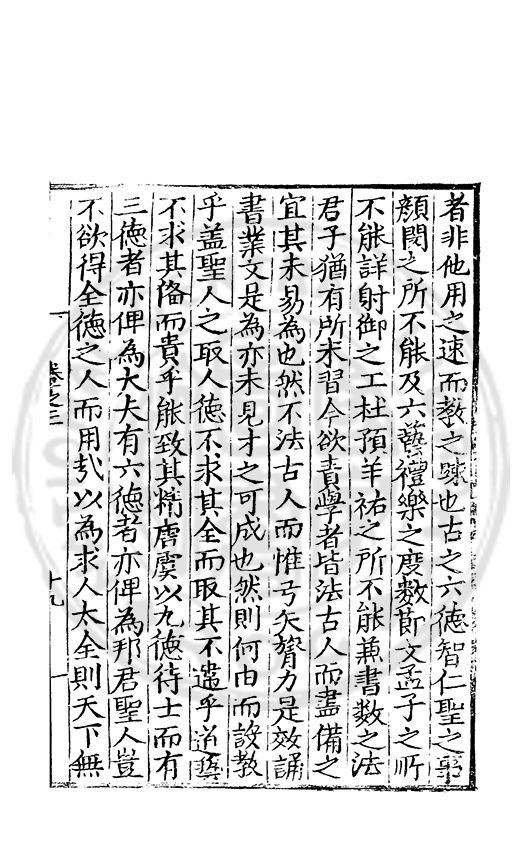 者非他用之速而教之踈也古之六德智仁聖之事
顔閔之所不能及六藝禮樂之度數節文孟子之所
不能詳射御之工杜預羊祜之所不能兼書數之法
君子猶有所未習今欲責學者皆法古人而盡備之
宜其未易為也然不法古人而惟弓矢膂力是效誦
書業文是為亦未見才之可成也然則何由而設教
乎盖聖人之取人德不求其全而取其不遺乎道藝
不求其俻而貴乎能致其精唐虞以九德待士而有
三德者亦俾為大夫有六德者亦俾為邦君聖人豈
不欲得全德之人而用㢤以為求人太全則天下無
卷之三
十九